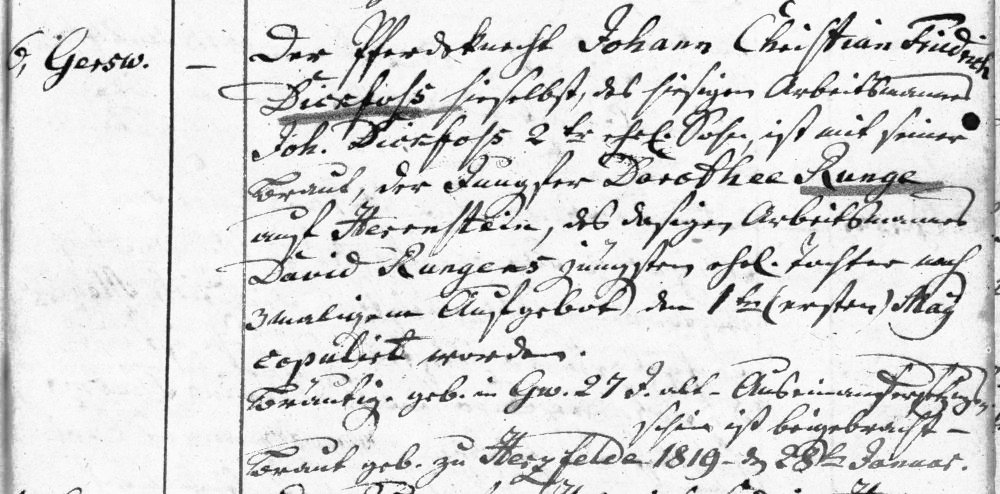 6, Gersw. – Der Pferdeknecht Johann Christian Friedrich
Dickfohs hieselbst, des hiesigen Arbeitsmannes
Joh. Dickfohs 2ter ehel. Sohn, ist mit seiner
Braut, der Jungfer Dorothee Runge
aus Herrnstein, des dasigen Arbeitsmannes
David Rungens jüngsten ehel. Tochter nach
3maligem Aufgebot den 1ten (ersten) May
copulirt worden.
Bräutig. geb. in Gw. 27 J. alt – Auseinandersetzungs
schein ist beigebracht –
Braut geb. zu Herzfelde 1819 d 28ten Januar.